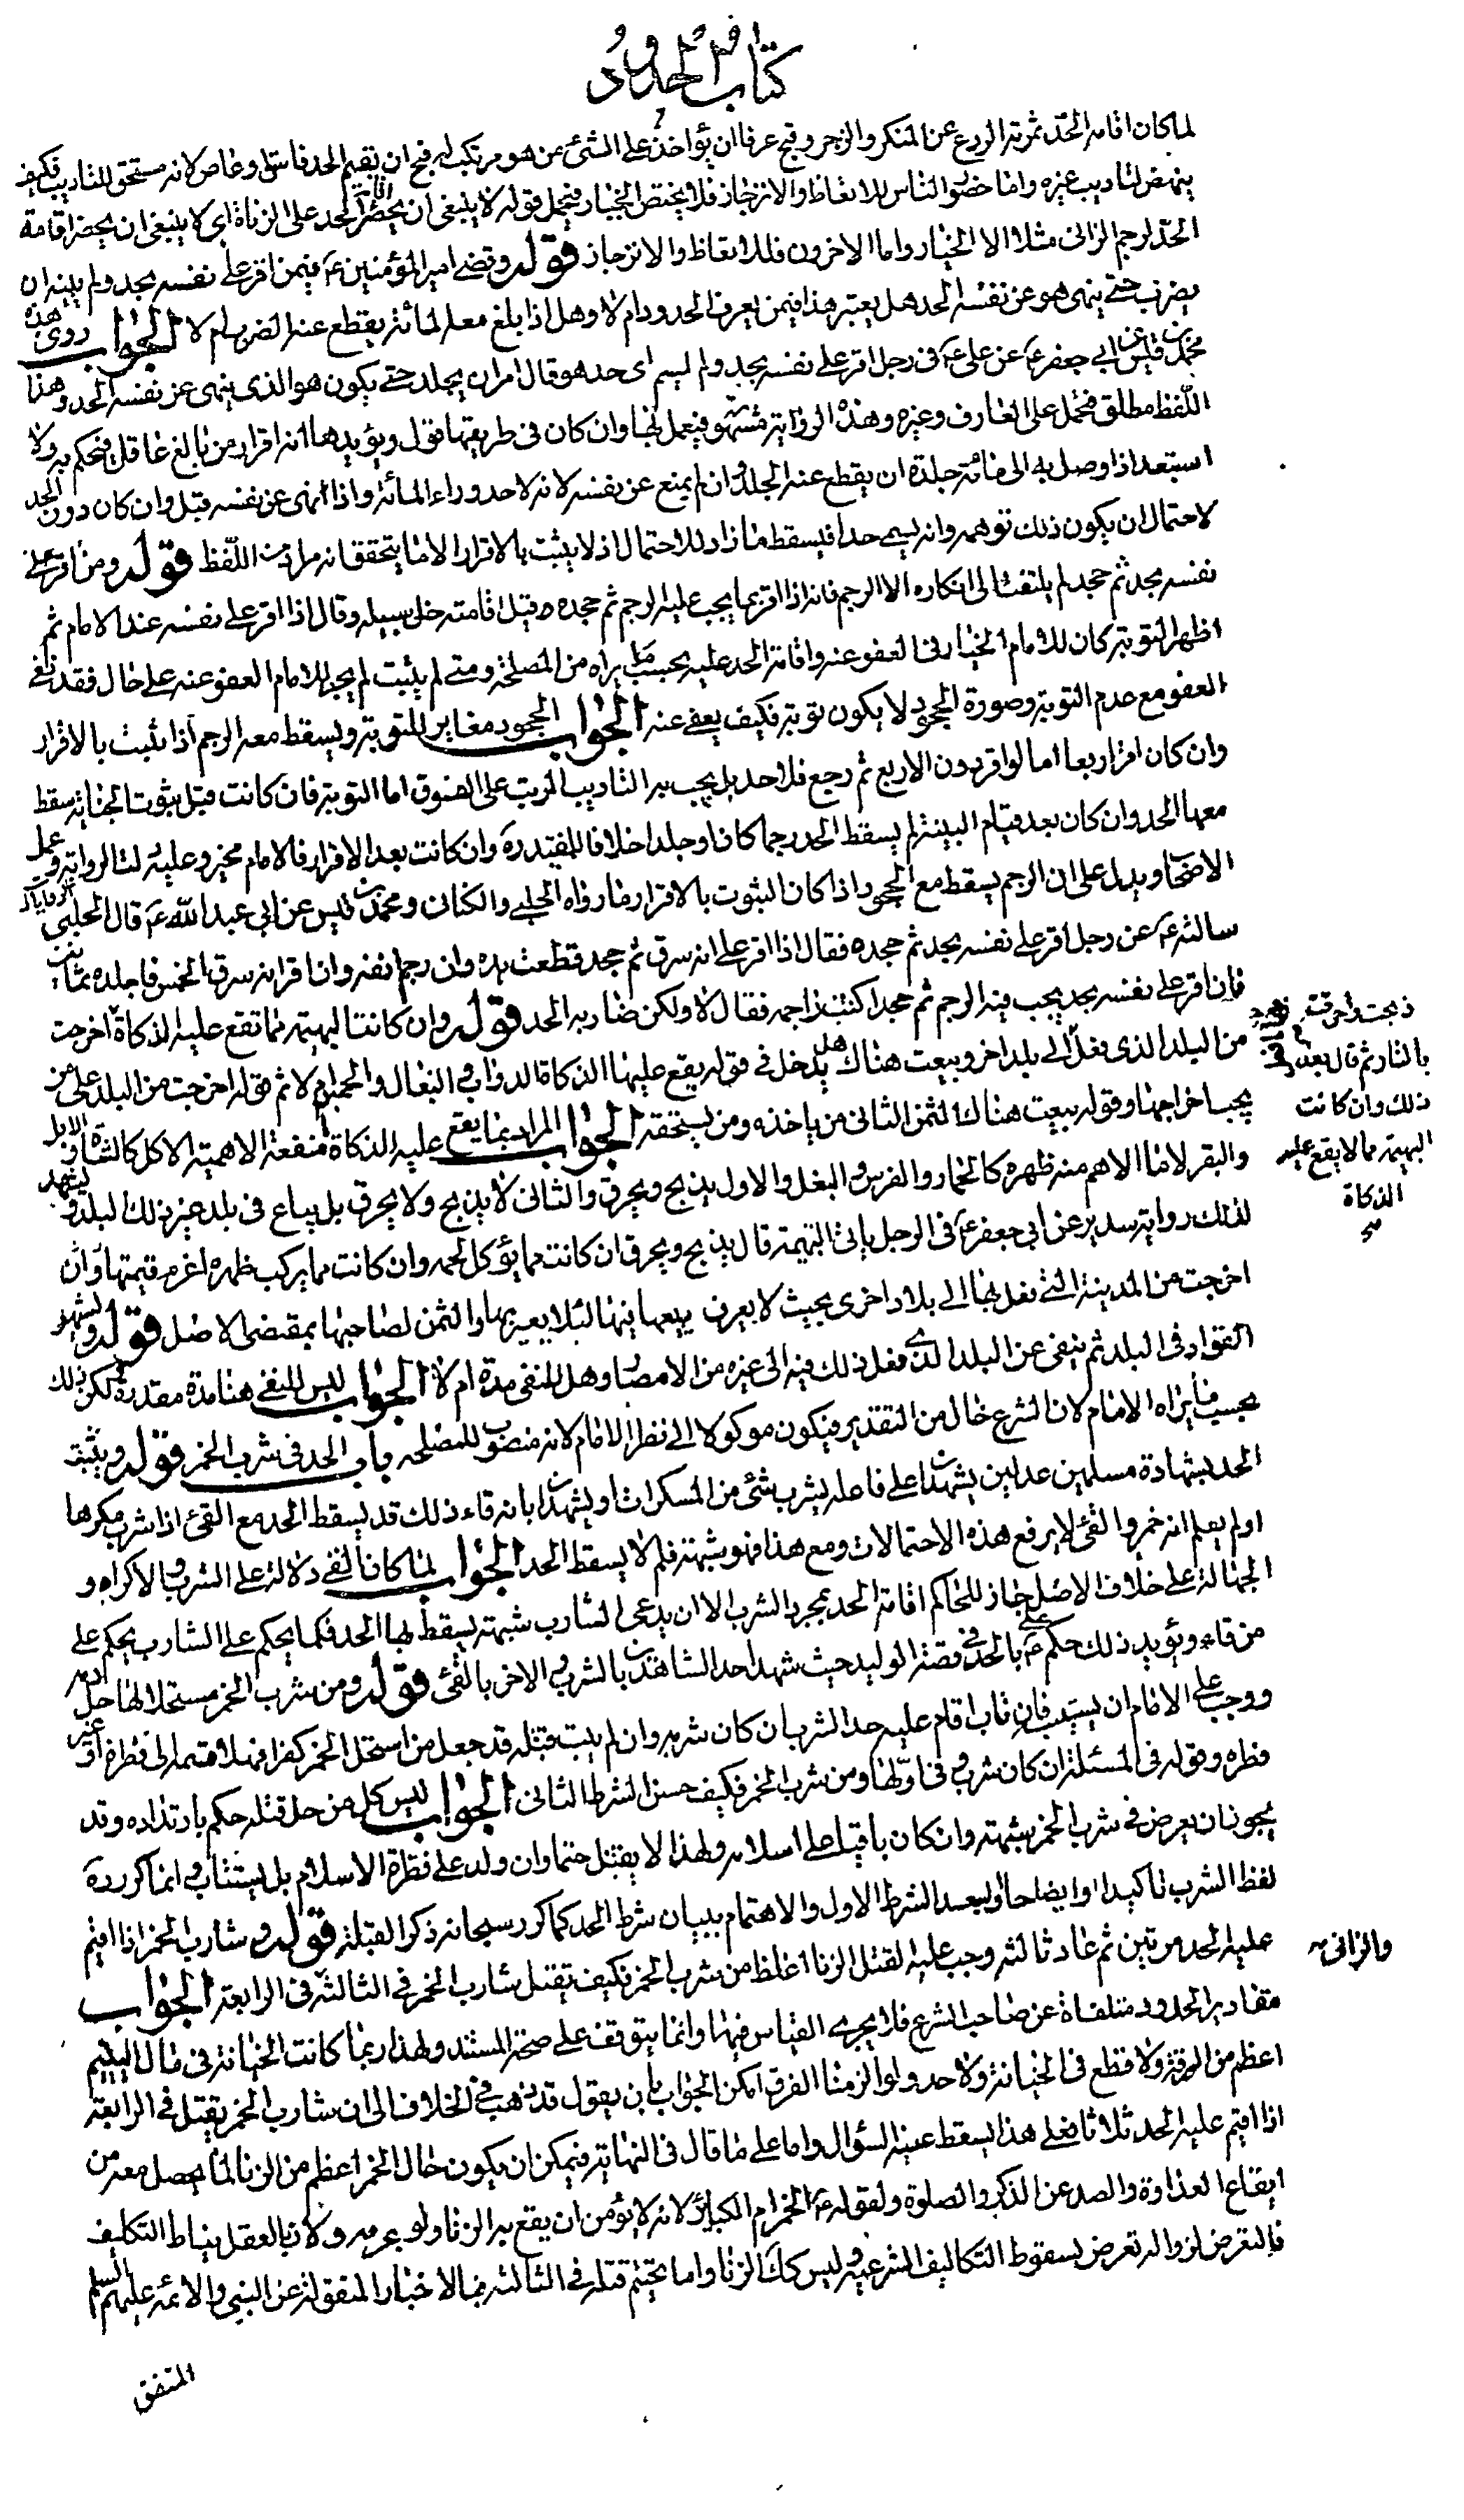 كتاب الحدود
لما كان اقامة الحد ثمرته الردع عن المنكر والزجر وقبح عرفا ان يؤاخذ على الشئ من هو مرتكب له قبح ان يقيم الحد فاسق او عاص لانه مستحق للتاديب فكيف
ينهض لتاديب غيره واما حضور الناس للاتعاظ والانزجار فلا يختص الخيار فيحمل قوله لا ينبغي ان يحضر اقامة الحد على الزناة اي لا ينبغي ان يحضر اقامة
الحد لرجم الزاني مثلا الا الخيار واما الاخرون فللاتعاظ والانزجار قوله وقضى امير المؤمنين ع فيمن اقر على نفسه بحد ولم يبينه ان
يضرب حتى ينهى هو عن نفسه الحد هل يعتبر هذا فيمن يعرف الحدود ام لا وهل اذا بلغ معه المائة يقطع عنه الضرب ام لا الجواب روى هذه
محمد بن قيس عن ابي جعفر ع عن علي ع في رجل اقر على نفسه بحد ولم يسم اي حد هو قال امر ان يجلد حتى يكون هو الذي ينهى عن نفسه الحد وهذا
اللفظ مطلق فيحمل على العارف وغيره وهذه الرواية مشتهرة فيعمل بها وان كان في طريقها قول ويؤيدها انه اقرار من بالغ عاقل فيحكم به ولا
استبعد اذا وصل به الى مائة جلدة ان يقطع عنه الجلد وان لم يمنع عن نفسه لانه لا حد وراء المائة واذا انهى عن نفسه قبل وان كان دون الحد
لاحتمال ان يكون ذلك توهمه وانه يسمى حدا فيسقط ما زاد للاحتمال اذ لا يثبت بالاقرار الا ما يتحقق انه مراد من اللفظ قوله ومن اقر على
نفسه بحد ثم جحد لم يلتفت الى انكاره الا الرجم فانه اذا اقر بما يجب عليه الرجم ثم جحده قبل اقامته خلي سبيله وقال اذا اقر على نفسه عند الامام ثم
اظهر التوبة كان للامام الخيار في العفو عنه واقامة الحد عليه بحسب ما يراه من المصلحة ومتى لم يثبت لم يجز للامام العفو عنه على حال فقد نفى
العفو مع عدم التوبة وصورة الجحود لا يكون توبة فكيف يعفى عنه الجواب الجحود مغاير للتوبة ويسقط معه الرجم اذا ثبت بالاقرار
وان كان اقر اربعا اما لو اقر دون الاربع ثم رجع فلا حد بل يجب به التاديب المرتب على الفسوق اما التوبة فان كانت قبل ثبوت الجناية سقط
معها الحد وان كان بعد قيام البينة لم يسقط الحد رجما كان او جلدا خلافا للمفيد ره وان كانت بعد الاقرار فالامام مخير وعليه لنا الرواية وعمل
الاصحاب ويدل على ان الرجم يسقط مع الجحود اذا كان الثبوت بالاقرار ما رواه الحلبي والكناني ومحمد بن قيس عن ابي عبد الله ع قال الحلبي
سالته ع عن رجل اقر على نفسه بحد ثم جحده فقال اذا اقر على انه سرق ثم جحد قطعت يده وان رجم انفه وان اقر انه شرب الخمر فاجلده ثمانين
فان اقر على نفسه بحد يجب فيه الرجم ثم جحد اكنت راجمه فقال لا ولكن ضاربه الحد قوله وان كانت البهيمة مما تقع عليه الذكاة اخرجت
من البلد الذي فعل الى بلد اخر وبيعت هناك هل يدخل في قوله يقع عليها الذكاة الدواب والبغال والحمير ام لا ثم قوله اخرجت من البلد على من
يجب اخراجها وقوله بيعت هناك الثمن الثاني من ياخذه ومن يستحقه الجواب المراد بما يقع عليه الذكاة منفعة الاهمية الاكل كالشاة والابل
والبقر لا ما الاهم منه ظهره كالحمار والفرس والبغل والاول يذبح ويحرق والثاني لا يذبح ولا يحرق بل يباع في بلد غير ذلك البلد ويشهد
لذلك رواية سدير عن ابي جعفر ع في الرجل ياتي البهيمة قال يذبح ويحرق ان كانت مما يؤكل لحمه وان كانت مما يركب ظهره اغرم قيمتها وان
اخرجت من المدينة التي فعل بها الى بلاد اخرى بحيث لا يعرف يبيعها فيها لئلا يعير بها والثمن لصاحبها بمقتضى الاصل قوله ويشهر
القواد في البلد ثم ينفى عن البلد الذي فعل ذلك فيه الى غيره من الامصار وهل للنفي مدة ام لا الجواب ليس للنفي هنا مدة مقدرة لكن ذلك
بحسب ما يراه الامام لان الشرع خال من التقدير فيكون موكولا الى نظر الامام لانه منصوب للمصلحة باب الحد في شرب الخمر قوله ويثبت
الحد بشهادة مسلمين عدلين يشهدان على فاعله بشرب شئ من المسكرات او يشهدان بانه قاء ذلك قد يسقط الحد مع القئ اذا شرب مكرها
او لم يعلم انه خمر والقئ لا يرفع هذه الاحتمالات ومع هذا فهو شبهة فلم لا يسقط الحد الجواب لما كان القئ دلالة على الشرب والاكراه و
الجهالة على خلاف الاصل جاز للحاكم اقامة الحد بمجرد الشرب الا ان يدعي الشارب شبهة يسقط بها الحد فكما يحكم على الشارب يحكم على
من قاء ويؤيد ذلك حكم علي ع بالحد في قصة الوليد حيث شهد احد الشاهدين بالشرب والاخر بالقئ قوله ومن شرب الخمر مستحلا لها حل دمه
ووجب على الامام ان يستتيبه فان تاب اقام عليه حد الشرب ان كان شربه وان لم يتب قتله قد جعل من استحل الخمر كفرا فهلا قسمه الى فطرة او غير
فطرة وقوله في المسئلة ان كان شربه وفي اولها ومن شرب الخمر فكيف حسن الشرط الثاني الجواب ليس كل من حل قتله حكم بارتداده وقد
يجوز ان يعرض في شرب الخمر شبهة وان كان باقيا على اسلامه ولهذا لا يقتل حتما وان ولد على فطرة الاسلام بل يستتاب وانما كرر
لفظ الشرب تاكيدا وايضاحا ولبعد الشرط الاول والاهتمام ببيان شرط الحد كما كرر سبحانه ذكر القبلة قوله وشارب الخمر اذا اقيم
عليه الحد مرتين ثم عاد ثالثة وجب عليه القتل الزنا اغلظ من شرب الخمر فكيف يقتل شارب الخمر في الثالثة والزاني في الرابعة الجواب
مقادير الحدود متلقاة عن صاحب الشرع فلا يجري القياس فيها وانما يتوقف على صحة المستند ولهذا ربما كانت الخيانة في مال اليتيم
اعظم من السرقة ولا قطع في الخيانة ولا حد ولو الزمنا الفرق امكن الجواب بان يقول قد ذهب في الخلاف الى ان شارب الخمر يقتل في الرابعة
اذا اقيم عليه الحد ثلاثا فعلى هذا يسقط عنه السؤال واما على ما قال في النهاية فيمكن ان يكون حال الخمر اعظم من الزنا لما يحصل معه من
ايقاع العداوة والصد عن الذكر والصلوة ولقوله ع الخمر ام الكبائر لانه لا يؤمن ان يقع به الزنا ولو بمحرمه ولان بالعقل يناط التكليف
فالتعرض لزواله تعرض لسقوط التكاليف الشرعية وليس كك الزنا واما يحتم قتله في الثالثة فبالاخبار المنقولة عن النبي والائمة عليهم السلم
المتفق
ذبحت واحرقت
بالنار ثم قال بعد
ذلك وان كانت
البهيمة مما لا يقع عليه
الذكاة
والزاني